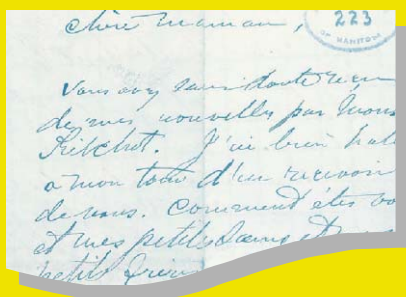 chère maman,
223
OF MANITOBA
Vous avez sans doute reçu
de mes nouvelles par Mons
Ritchot. J'ai bien hâte
à mon tour d'en recevoir
de vous. Comment êtes vo
et mes petites Sœurs et
petits frères